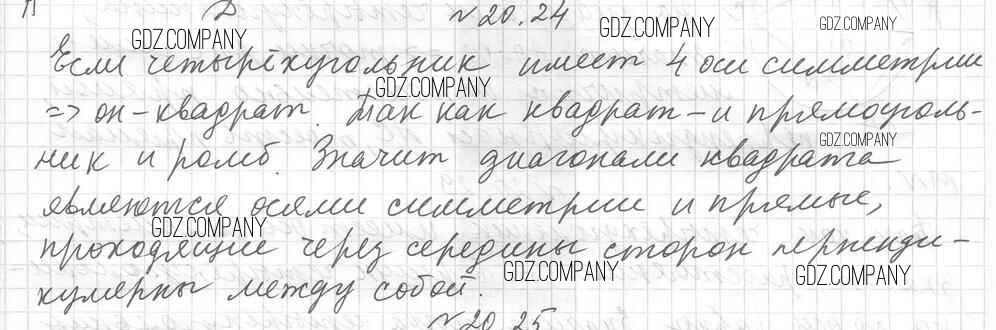 №20.24
GDZ.COMPANY GDZ.COMPANY GDZ.COMPANY
Если четырёхугольник имеет 4 оси симметрии
GDZ.COMPANY
=> он - квадрат. Так как квадрат - и прямоуголь-
GDZ.COMPANY
ник и ромб. Значит диагонали квадрата
являются осями симметрии и прямые,
GDZ.COMPANY
проходящие через середины сторон перпенди-
GDZ.COMPANY GDZ.COMPANY
кулярны между собой.
№20.25